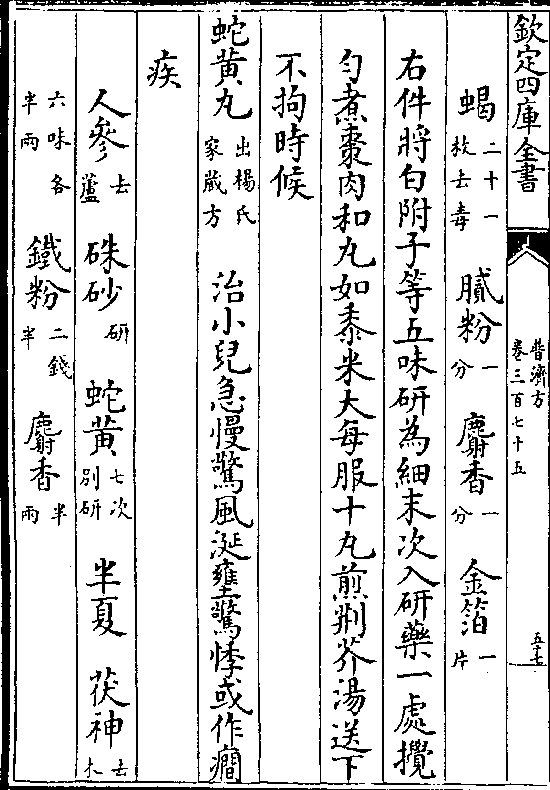 欽定四庫全書
普濟方
卷三百七十五
蝎二十一枚去毒 膩粉一分 麝香一分 金箔一片
右件將白附子等五味研為細末次入研藥一處攪
勻煮棗肉和丸如黍米大每服十丸煎荆芥湯送下
不拘時候
蛇黄丸出楊氏家蔵方 治小兒急慢驚風涎壅驚悸或作癎
疾
人參去蘆 硃砂研 蛇黄七次别研 半夏 茯神去木
六味各半兩 鐵粉二錢半 麝香半兩